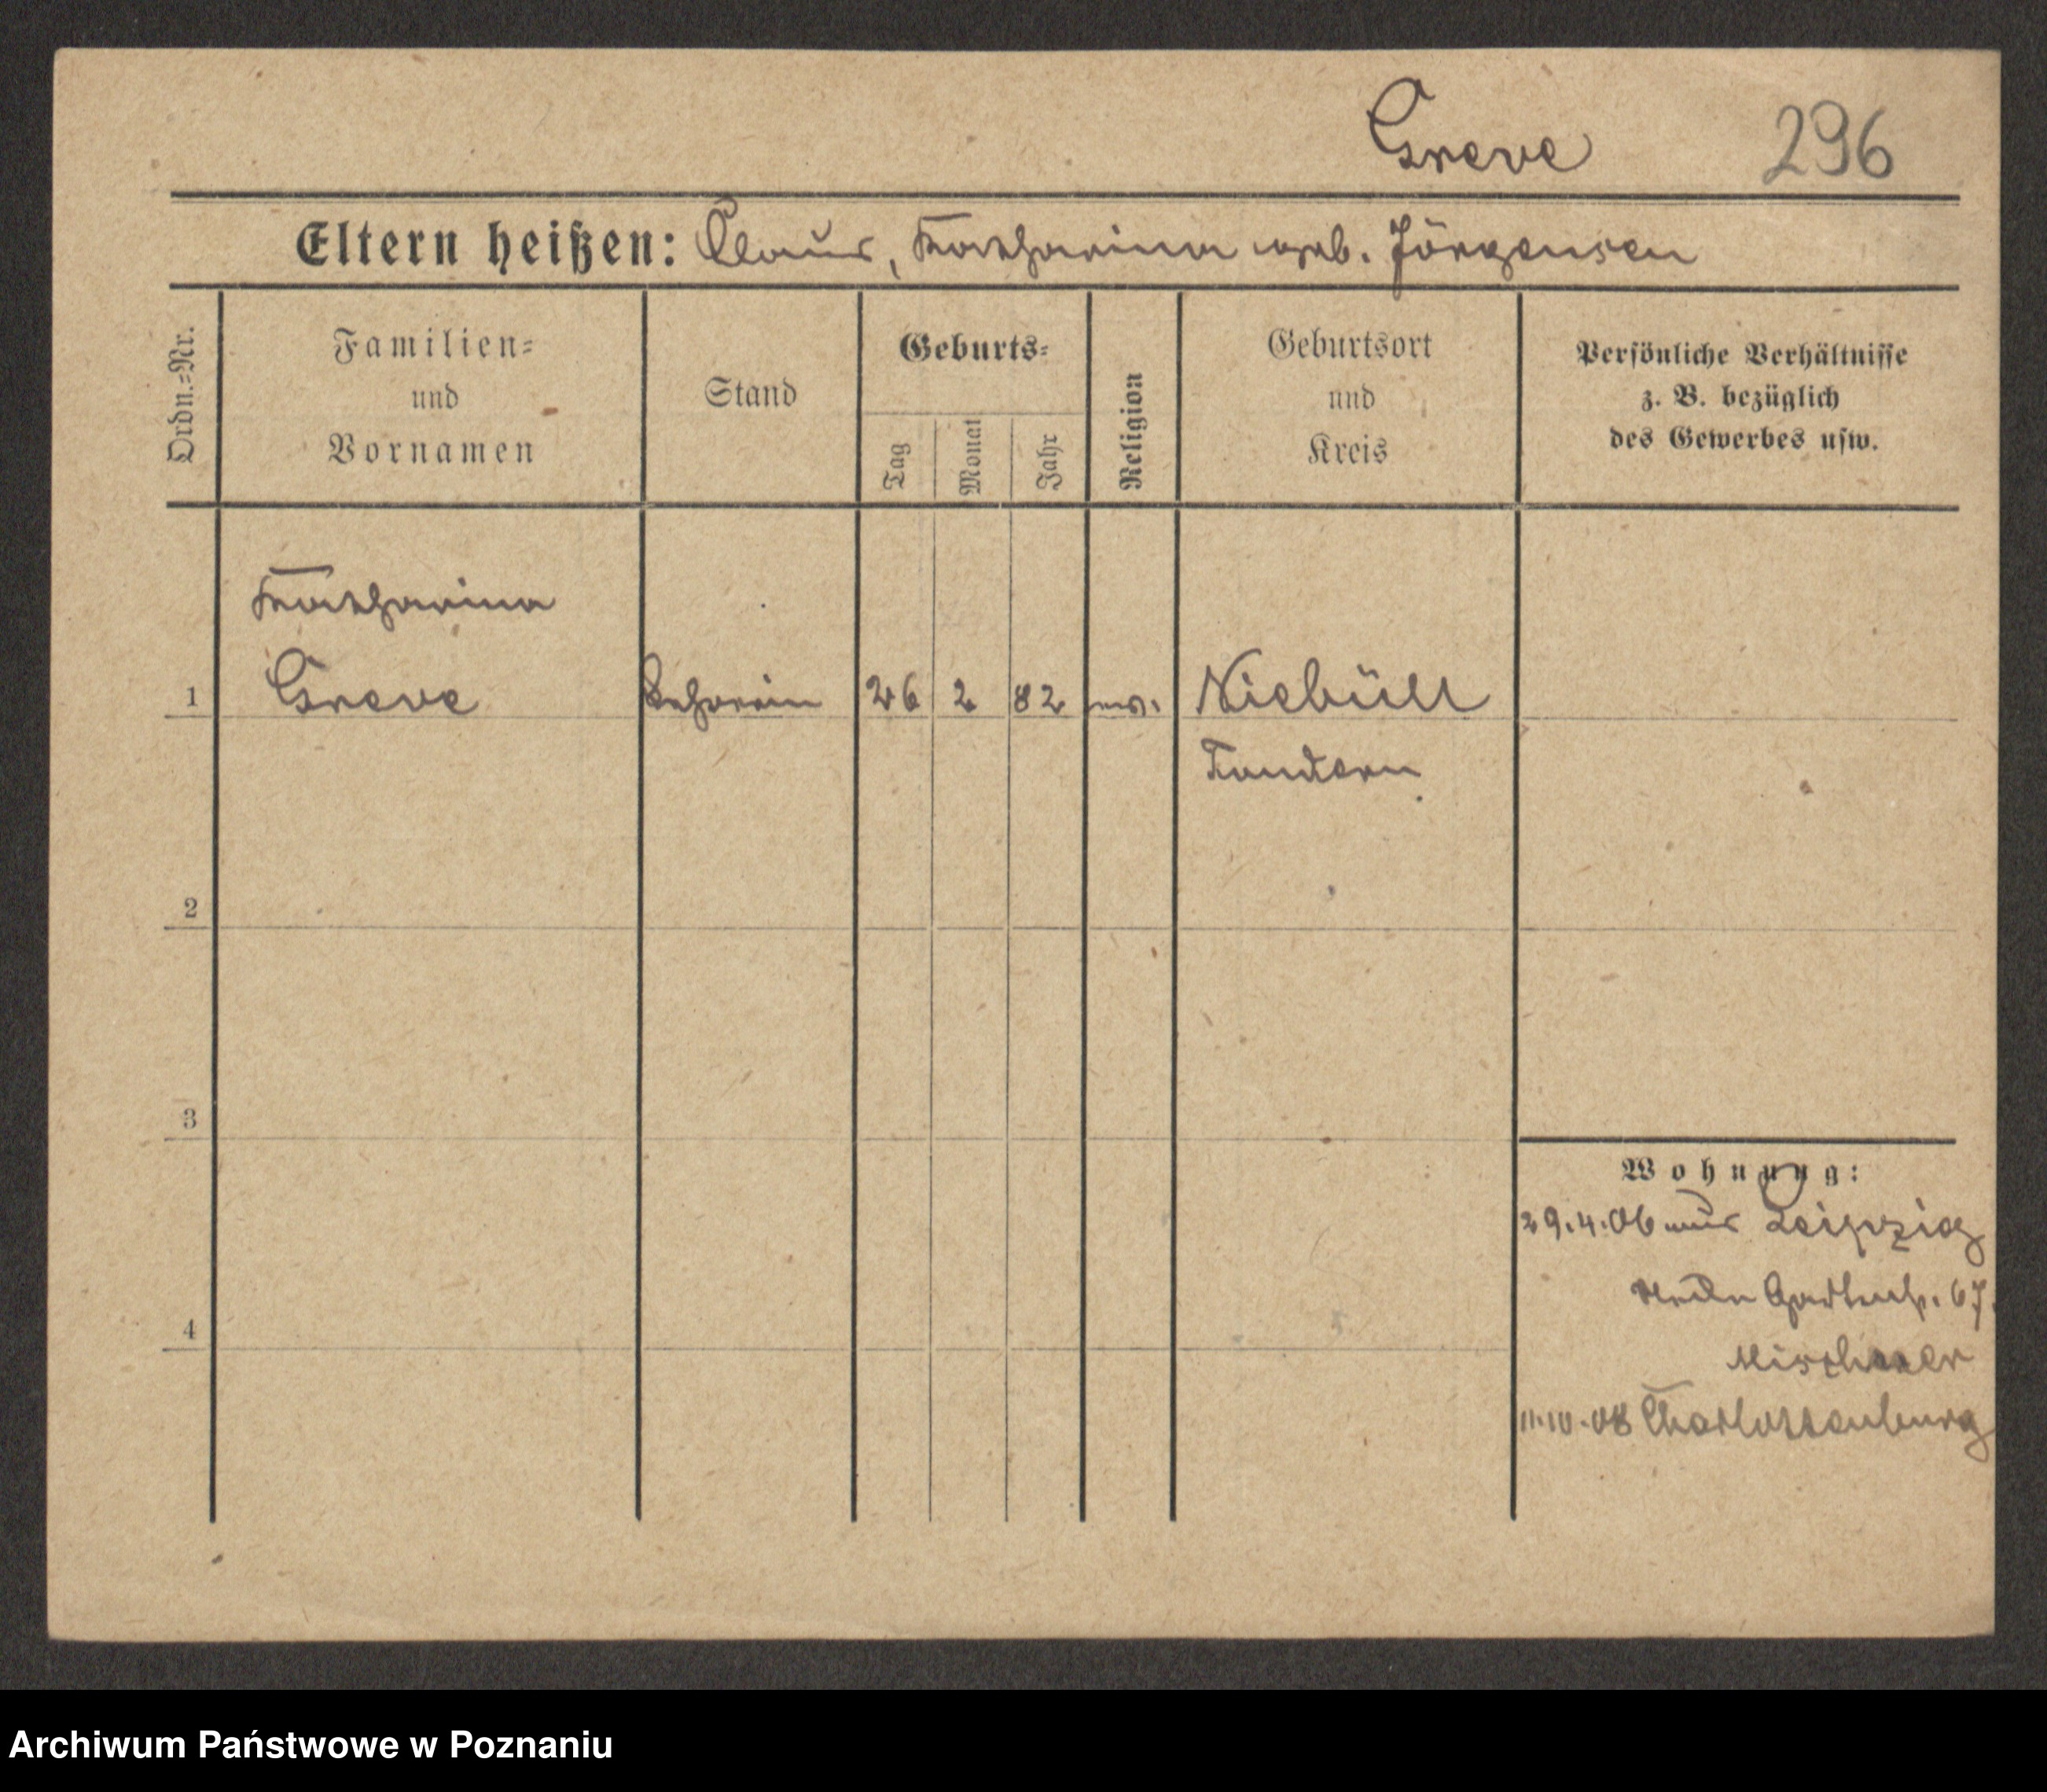 Greve 296
Eltern heißen: Claus, Katharina geb. Jörgensen
Ordn.=Nr.
Familien=
und
Vornamen
Stand
Geburts=
Tag
Monat
Jahr
Religion
Geburtsort
und
Kreis
Persönliche Verhältnisse
z. B. bezüglich
des Gewerbes usw.
Katharina
1 Greve Lehrerin 26 2 82 ev. Niebüll
Tondern
2
3
4
Wohnung:
29.4.06 aus Leipzig
67.
11.10.08 Charlottenburg
Archiwum Państwowe w Poznaniu